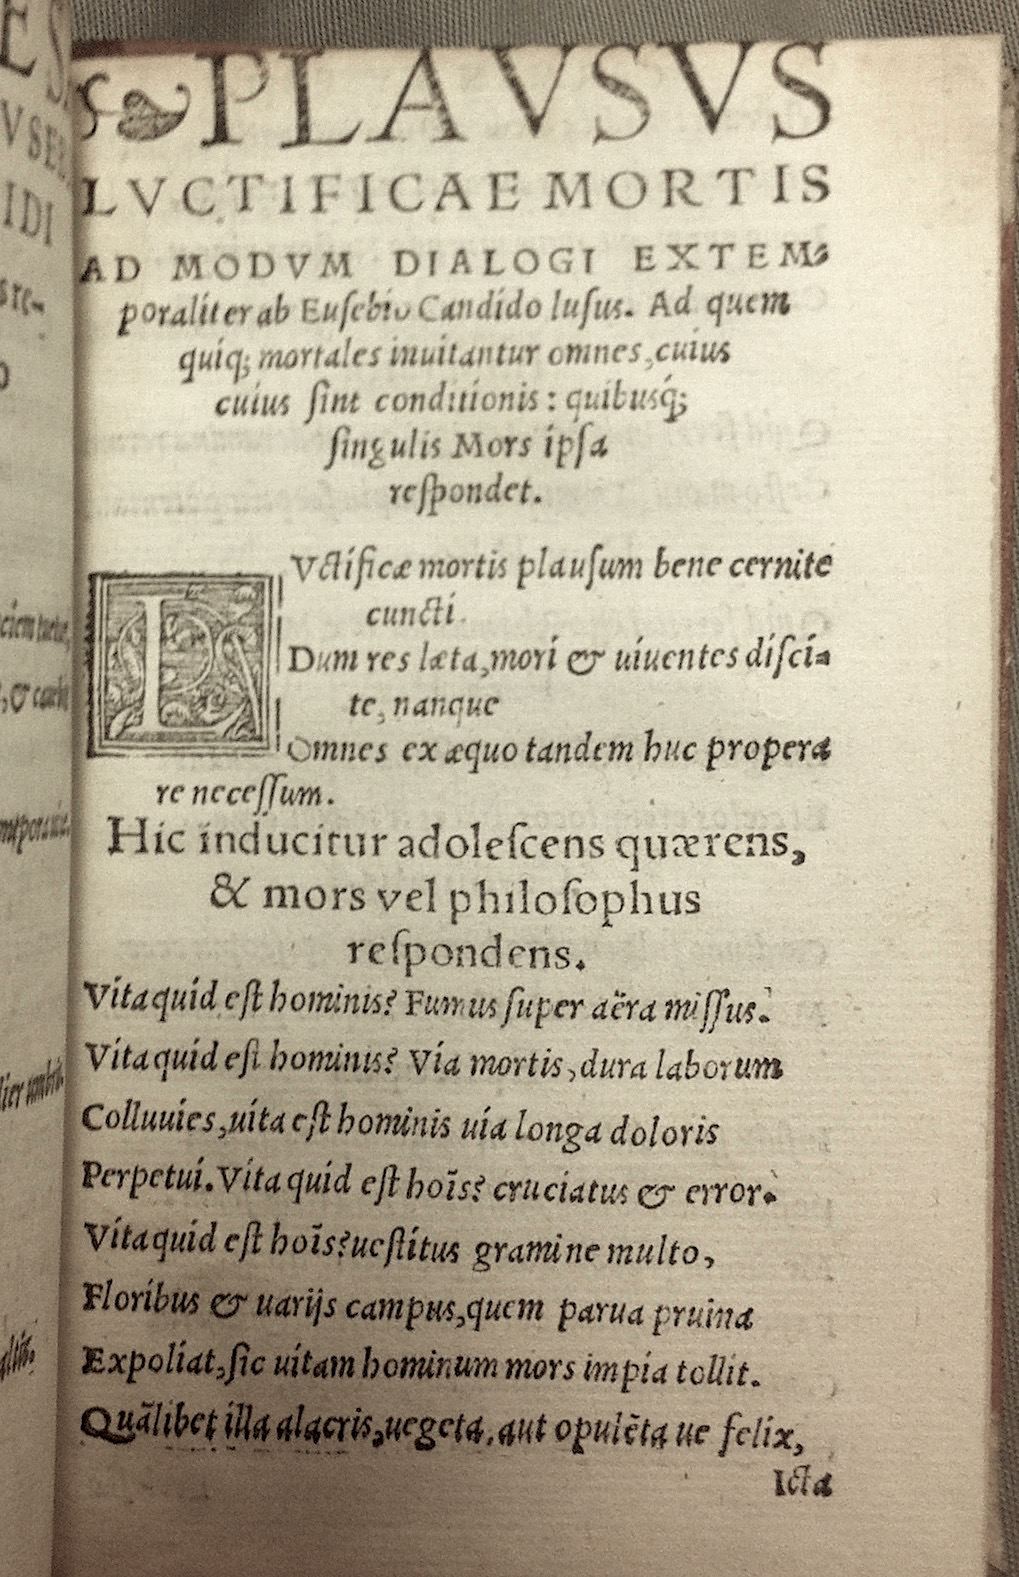 ❧ PLAVSVS
LVCTIFICAE MORTIS
AD MODVM DIALOGI EXTEM⸗
poraliter ab Euſebio Candido luſus. Ad quem
quiq; mortales inuitantur omnes, cuius
cuius ſint conditionis : quibusq́;
ſingulis Mors ipſa
reſpondet.
LVctificæ mortis plauſum bene cernite
cuncti.
Dum res læta, mori & uiuentes diſci⸗
te, nanque
Omnes ex æquo tandem huc propera
re neceſſum.
Hic inducitur adoleſcens quærens,
& mors vel philoſophus
reſpondens.
Vita quid eſt hominis? Fumus ſuper aëra miſſus.
Vita quid eſt hominis? Via mortis, dura laborum
Colluuies, uita eſt hominis uia longa doloris
Perpetui. Vita quid eſt hoı̄s? cruciatus & error.
Vita quid eſt hoı̄s? ueſtitus gramine multo,
Floribus & uarijs campus, quem parua pruina
Expoliat, ſic uitam hominum mors impia tollit.
Quālibet illa alacris, uegeta, aut opulēta ue felix,
Icta